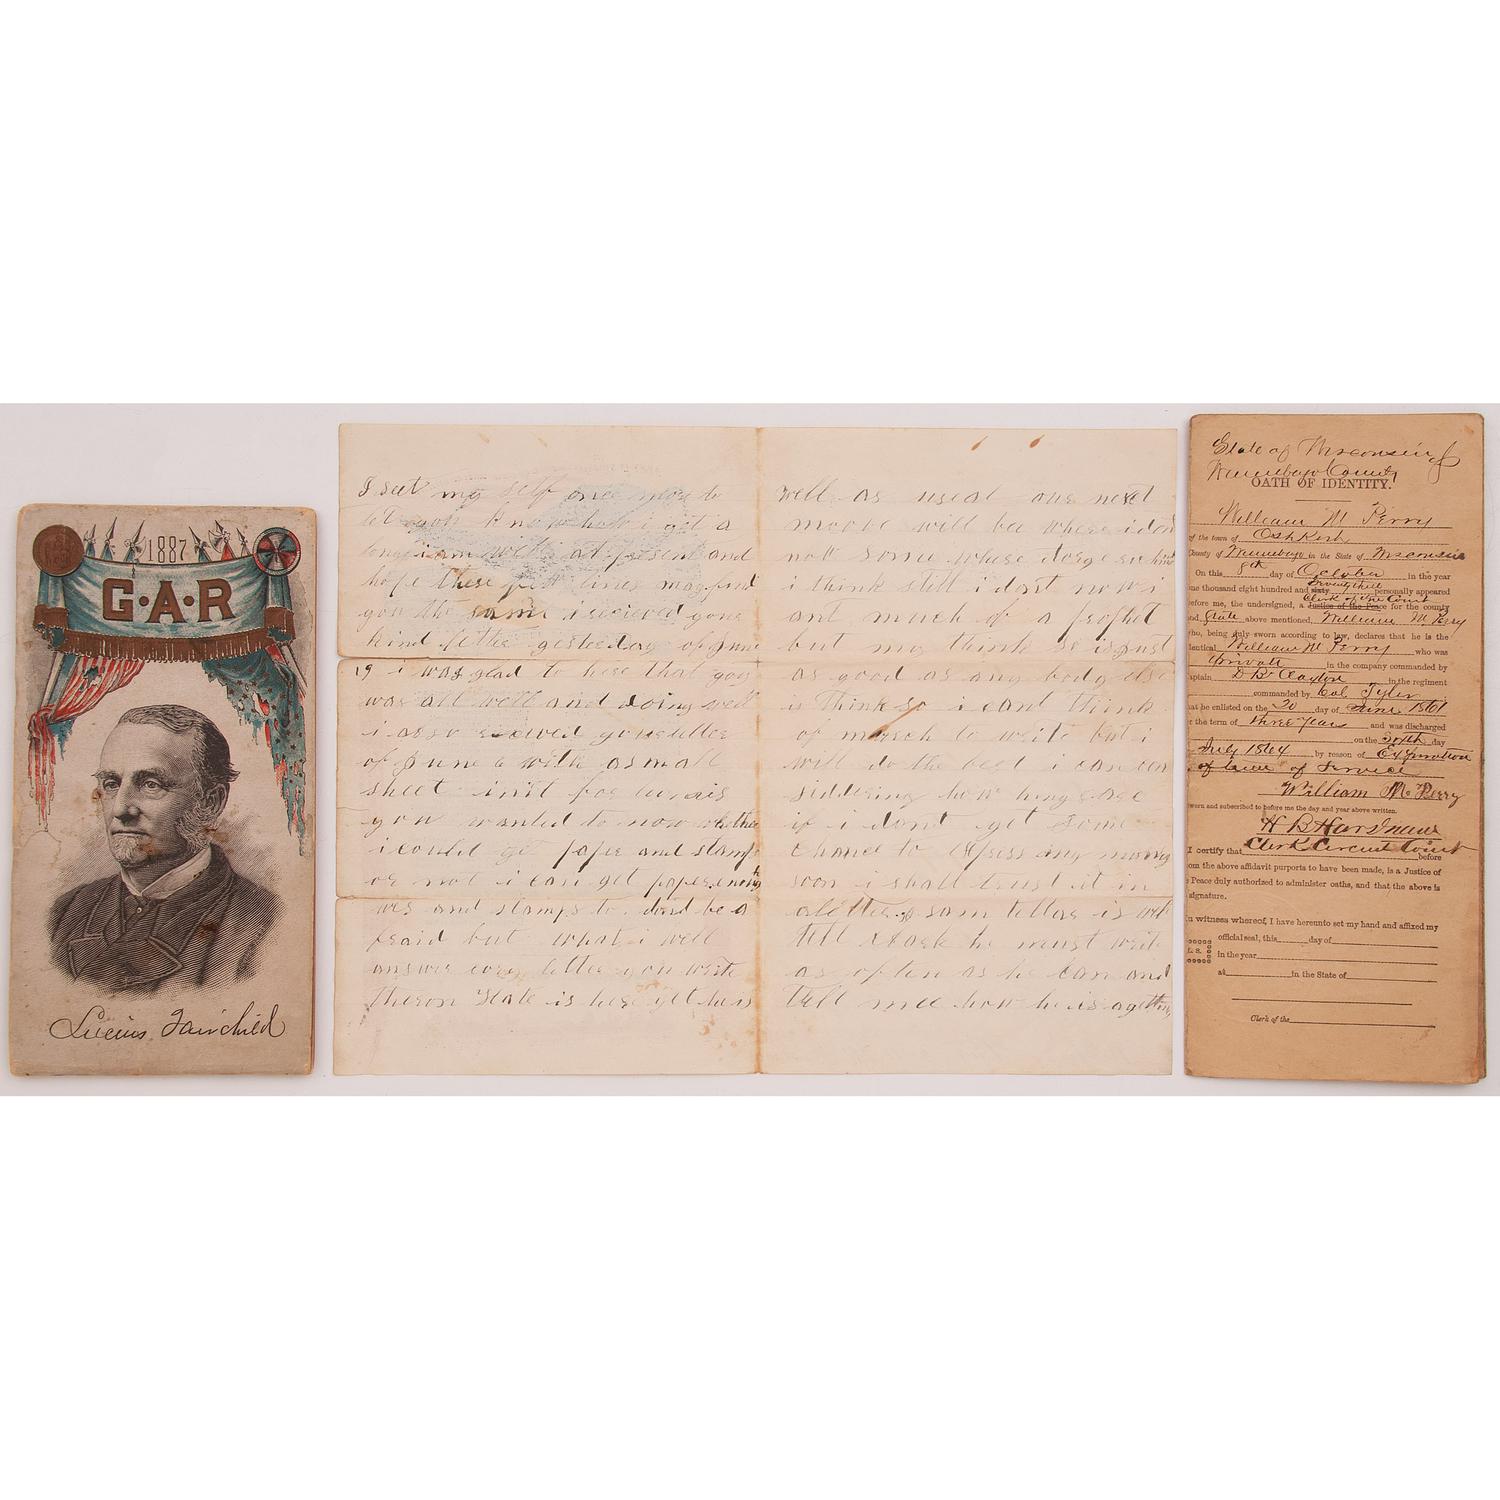 1887
G·A·R
Lucius Fairchild
I seet my self one more to
let you know how i get a
long i am well at present and
hope these few lines may find
you the same i recieved your
kind letter yesterday of June
19 i was glad to here that you
was all well and doing well
i also recieved your letter
of June 6 with a small
sheet in it for
you wanted to now whether
i could get paper and stamps
or not i can get paper
and stamps to dont be a
fraid but what i will
answer every letter you write
Theron State is here yet he is
well as useal our next
moove will bee where i dont
now some whose
i think still i dont now i
aint much of a profhet
but my think so is just
as good as any body else
is think so i cant think
of mutch to write but i
will do the best i can con
siddering how
if i dont get some
chance to express my money
soon i shall trust it in
a letter
tell he must write
as often as he can and
tell mee how he is a getting
State of Wisconsin
Winnebago County
OATH OF IDENTITY.
William M Perry
of the town of Oshkosh
County of Winnebago in the State of Wisconsin
On this 8th day of October in the year
one thousand eight hundred and sixty seventy three personally appeared
before me, the undersigned, a Justice of the Peace Clerk of the Court for the county
and State above mentioned, William M Perry
who, being duly sworn according to law, declares that he is the
identical William M Perry who was
a private in the company commanded by
Captain D B Clayton in the regiment
commanded by Col Tyler
that he enlisted on the 20 day of June 1861
for the term of three year and was discharged
on the day
July 1864 by reason of Expiration
of term of Service
William M. Perry
Sworn and subscribed to before me the day and year above written.
H B Harshaw
Clerk Circuit Court
I certify that before
whom the above affidavit purports to have been made, is a Justice of
the Peace duly authorized to administer oaths, and that the above is
his signature.
In witness whereof, I have hereunto set my hand and affixed my
official seal, this day of
L. S. in the year
at in the State of
Clerk of the